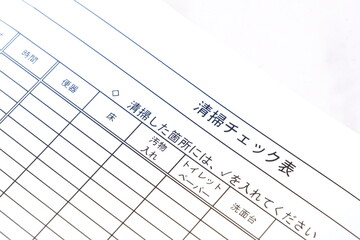 清掃チェック表
◇ 清掃した箇所には、✓を入れてください
時間 便器 床 汚物入れ トイレットペーパー 洗面台